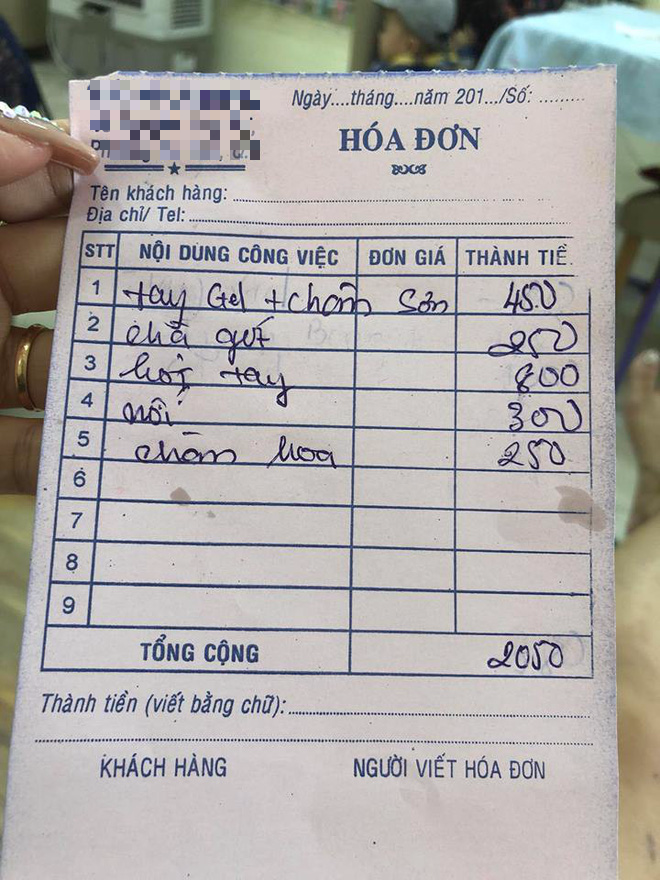 Ngày....tháng....năm 201.../Số: .........
HÓA ĐƠN
Tên khách hàng:
Địa chỉ/ Tel:
STT NỘI DUNG CÔNG VIỆC ĐƠN GIÁ THÀNH TIỀ
1 tay Gel + chăm sơn 450
2 chà gót 250
3 hột tay 800
4 nối 300
5 chăm hoa 250
6
7
8
9
TỔNG CỘNG 2050
Thành tiền (viết bằng chữ):
KHÁCH HÀNG NGƯỜI VIẾT HÓA ĐƠN